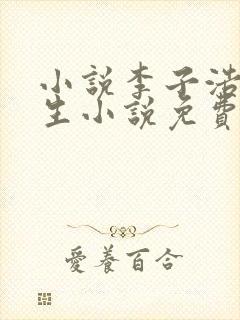 小說李子浩
生小說免費
愛養百合